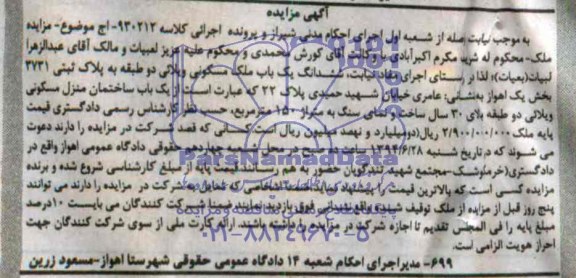 آگهی مزایده
به موجب نیابت صله از شعبه اول اجرای احکام مدنی شیراز و پرونده اجرائی کلاسه ۹۳۰۲۱۲- اج موضوع- مزایده
ملک- محکوم له شرید مکرم اکبرآبادی با وکالت آقای کورش محمدی و محکوم علیه عزیز لعبیات و مالک آقای عبدالزهرا
لذا در راستای اجرای مفاد نیابت، ششدانگ یک باب ملک مسکونی ویلائی دو طبقه به پلاک ثبتی ۳۷۳۱
بخش یک اهواز به نشانی: عامری خیابان شهید حمیدی پلاک ۲۲ که عبارت است از یک باب ساختمان منزل مسکونی
ویلائی دو طبقه بالای ۳۰ سال ساخت و نمای سنگ به متراژ ۱۵۰ مترمربع، حسب نظر کارشناس رسمی دادگستری قیمت
پایه ملک ۲/۹۰۰/۰۰۰/۰۰۰ ریال (دو میلیارد و نهصد میلیون ریال است کسانی که قصد شرکت در مزایده را دارند دعوت
می شوند که در تاریخ شنبه ۱۳۹۴/۶/۲۸ ساعت صبح در محل شعبه چهاردهم حقوقی دادگاه عمومی اهواز واقع در
دادگستری (خرمکوشک- مجتمع شهید تندگویان حضور به هم رسانند قیمت پایه از مبلغ کارشناسی شروع شده و برنده
مزایده کسی است که بالاترین قیمت را پیشنهاد نماید ضمنا اشخاصی که تمایل به شرکت در مزایده را دارند می توانند
پنج روز قبل از مزایده از ملک توقیف شده واقع در نشانی فوق بازدید نمایند ضمنا شرکت کنندگان می بایست ۱۰ درصد
مبلغ پایه را فی المجلس تقدیم تا اجازه شرکت در مزایده را داشته باشند. ارائه کارت ملی از سوی شرکت کنندگان جهت
احراز هویت الزامی است.
۶۹۹- مدیر اجرای احکام شعبه ۱۴ دادگاه عمومی حقوقی شهرستان اهواز- مسعود زرین
ParsNamadData
۰۲۱-۸۸۳۴۹۶۷۰-۵